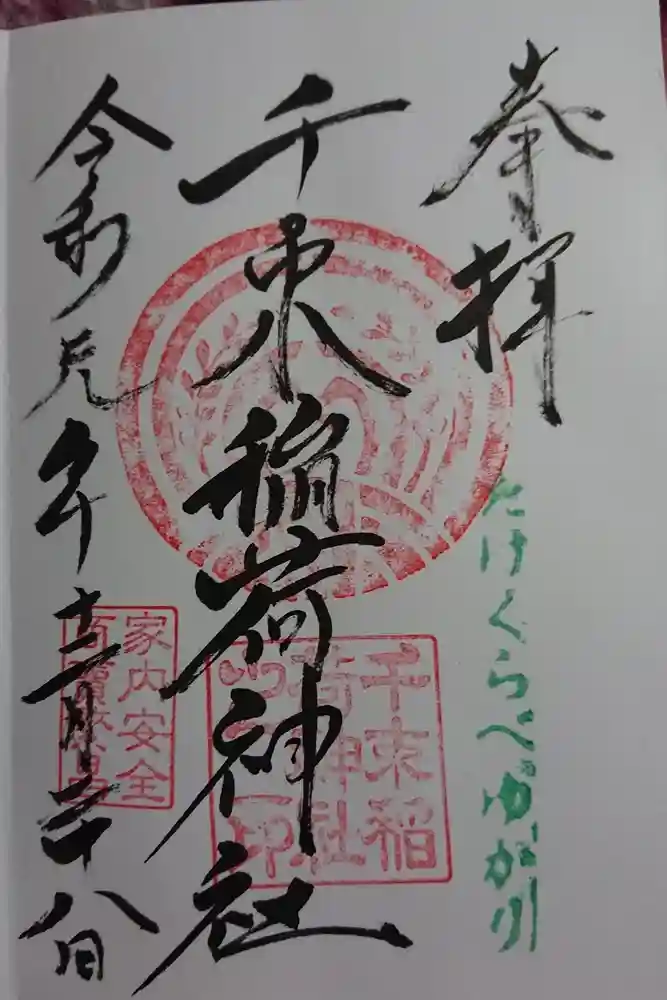 奉拝
たけくらべゆかり
千束稲荷神社
千束稲
荷神社
印
令和元年十二月二十八日
家内安全